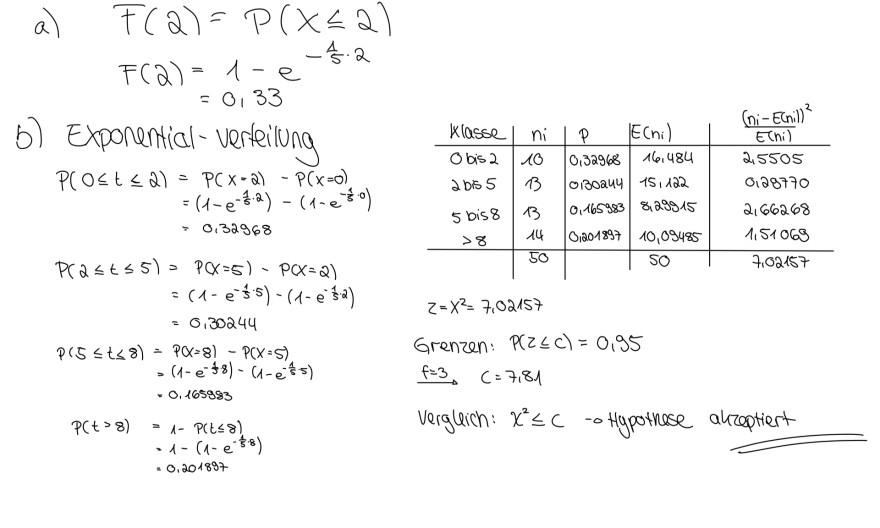 a) F(2) = P(X ≤ 2)
F(2) = 1 - e^(-1/5·2)
= 0,33
b) Exponential-verteilung
P(0 ≤ t ≤ 2) = P(X=2) - P(X=0)
= (1-e^(-1/5·2)) - (1-e^(-1/5·0))
= 0,32968
P(2 ≤ t ≤ 5) = P(X=5) - P(X=2)
= (1-e^(-1/5·5)) - (1-e^(-1/5·2))
= 0,30244
P(5 ≤ t ≤ 8) = P(X=8) - P(X=5)
= (1-e^(-1/5·8)) - (1-e^(-1/5·5))
= 0,165983
P(t > 8) = 1 - P(t ≤ 8)
= 1 - (1-e^(-1/5·8))
= 0,201897
Klasse ni P E(ni) (ni-E(ni))²/E(ni)
0 bis 2 10 0,32968 16,484 2,5505
2 bis 5 13 0,30244 15,122 0,29770
5 bis 8 13 0,165983 8,29915 2,66268
>8 14 0,201897 10,09485 1,51069
50 50 7,02157
z = X² = 7,02157
Grenzen: P(z ≤ c) = 0,95
f=3 c = 7,81
Vergleich: X² ≤ c → Hypothese akzeptiert